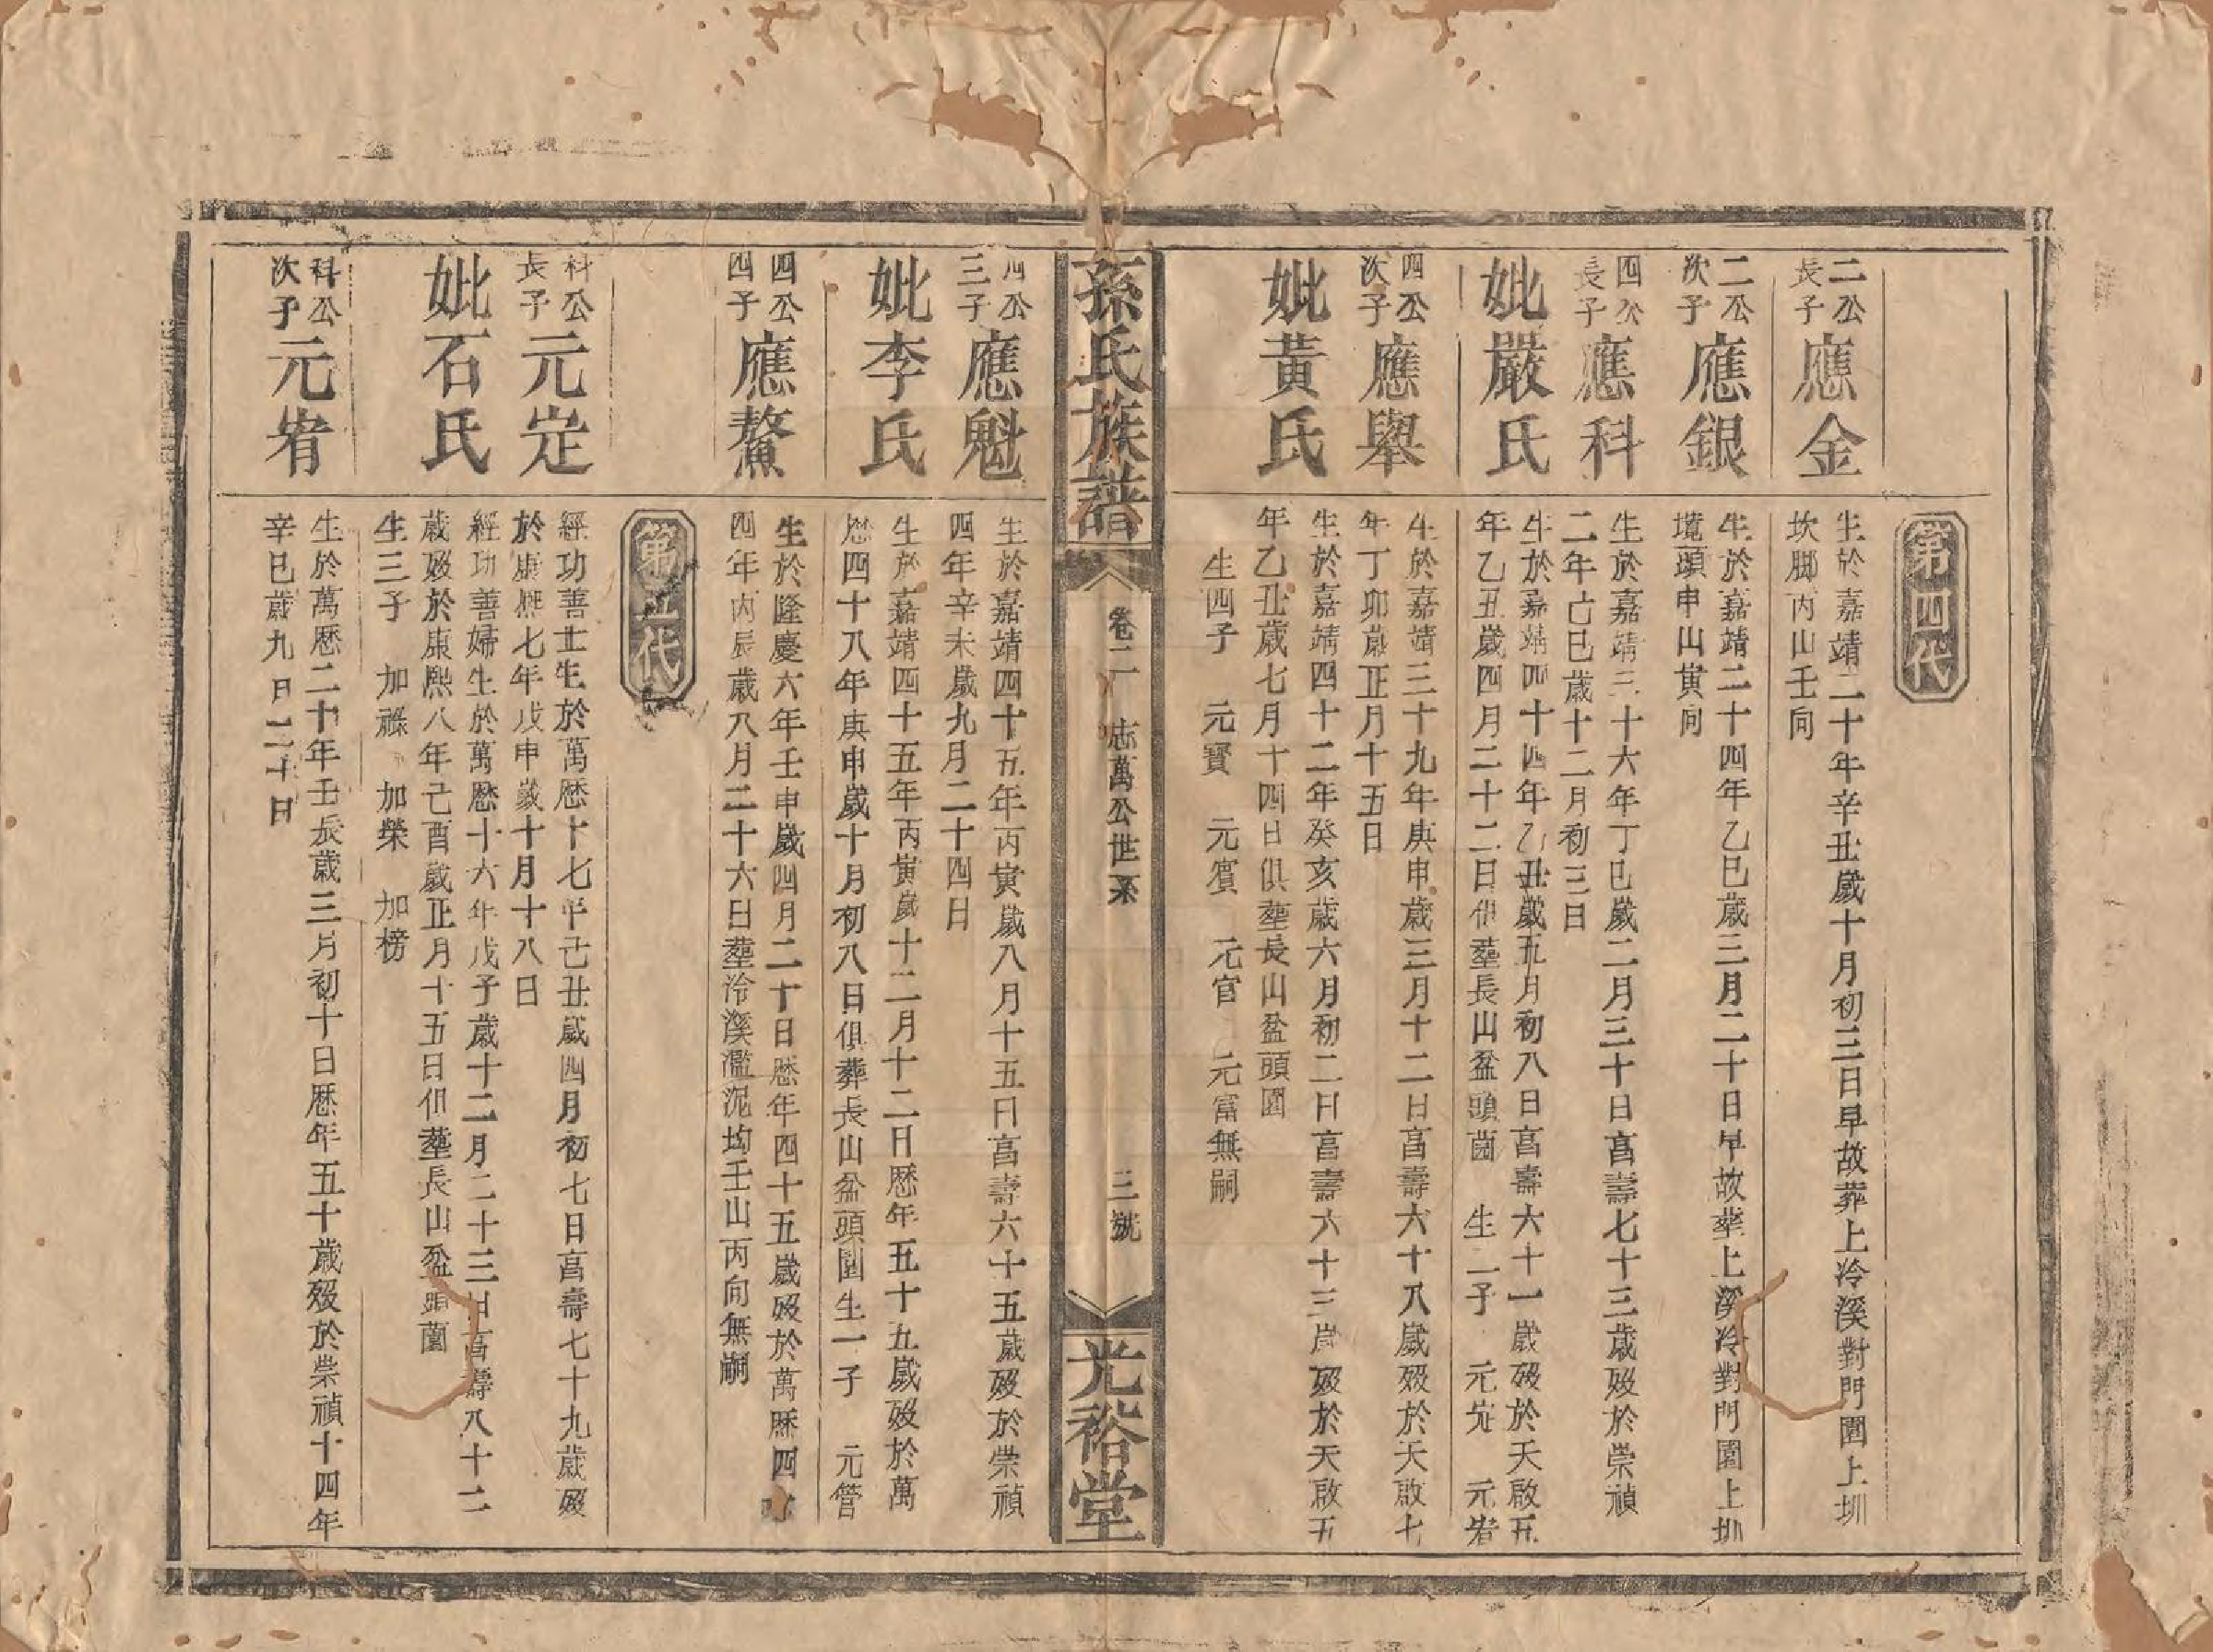 第四代
二公長子應金
生於嘉靖二十年辛丑歲十月初三日早故葬上冷溪對門園上圳
坎脚丙山壬向
二公次子應銀
生於嘉靖二十四年乙巳歲三月二十日早故塟上溪冷對門園上圳
墝頭申山寅向
四公長子應科
生於嘉靖三十六年丁巳歲二月三十日亯壽七十三歲殁於崇禎
二年己巳歲十二月初三日
妣嚴氏
生於嘉靖四十四年乙丑歲五月初八日亯壽六十一歲殁於天啟五
年乙丑歲四月二十二日俱塟長山盆頭園 生二子 元㝎 元宥
四公次子應舉
生於嘉靖三十九年庚申歲三月十二日亯壽六十八歲殁於天啟七
年丁卯歲正月十五日
妣黃氏
生於嘉靖四十二年癸亥歲六月初二日亯壽六十三歲殁於天啟五
年乙丑歲七月十四日俱塟長山盆頭園
生四子 元寶 元賓 元官 元富無嗣
孫氏族譜 卷二 志萬公世系 三號 光裕堂
四公三子應魁
生於嘉靖四十五年丙寅歲八月十五日亯壽六十五歲殁於崇禎
四年辛未歲九月二十四日
妣李氏
生於嘉靖四十五年丙寅歲十二月十二日歷年五十五歲殁於萬
歷四十八年庚申歲十月初八日俱葬長山盆頭園生一子 元管
四公四子應鰲
生於隆慶六年壬申歲四月二十日歷年四十五歲殁於萬歷四十
四年丙辰歲八月二十六日塟冷溪濫泥坳壬山丙向無嗣
第五代
科公長子元㝎
經功善士生於萬歷十七年己丑歲四月初七日亯壽七十九歲殁
於康熙七年戊申歲十月十八日
妣石氏
經功善婦生於萬歷十六年戊子歲十二月二十三日亯壽八十二
歲殁於康熙八年己酉歲正月十五日俱塟長山盆頭園
生三子 加祿 加榮 加榜
科公次子元宥
生於萬歷二十年壬辰歲三月初十日歷年五十歲殁於崇禎十四年
辛巳歲九月二十日